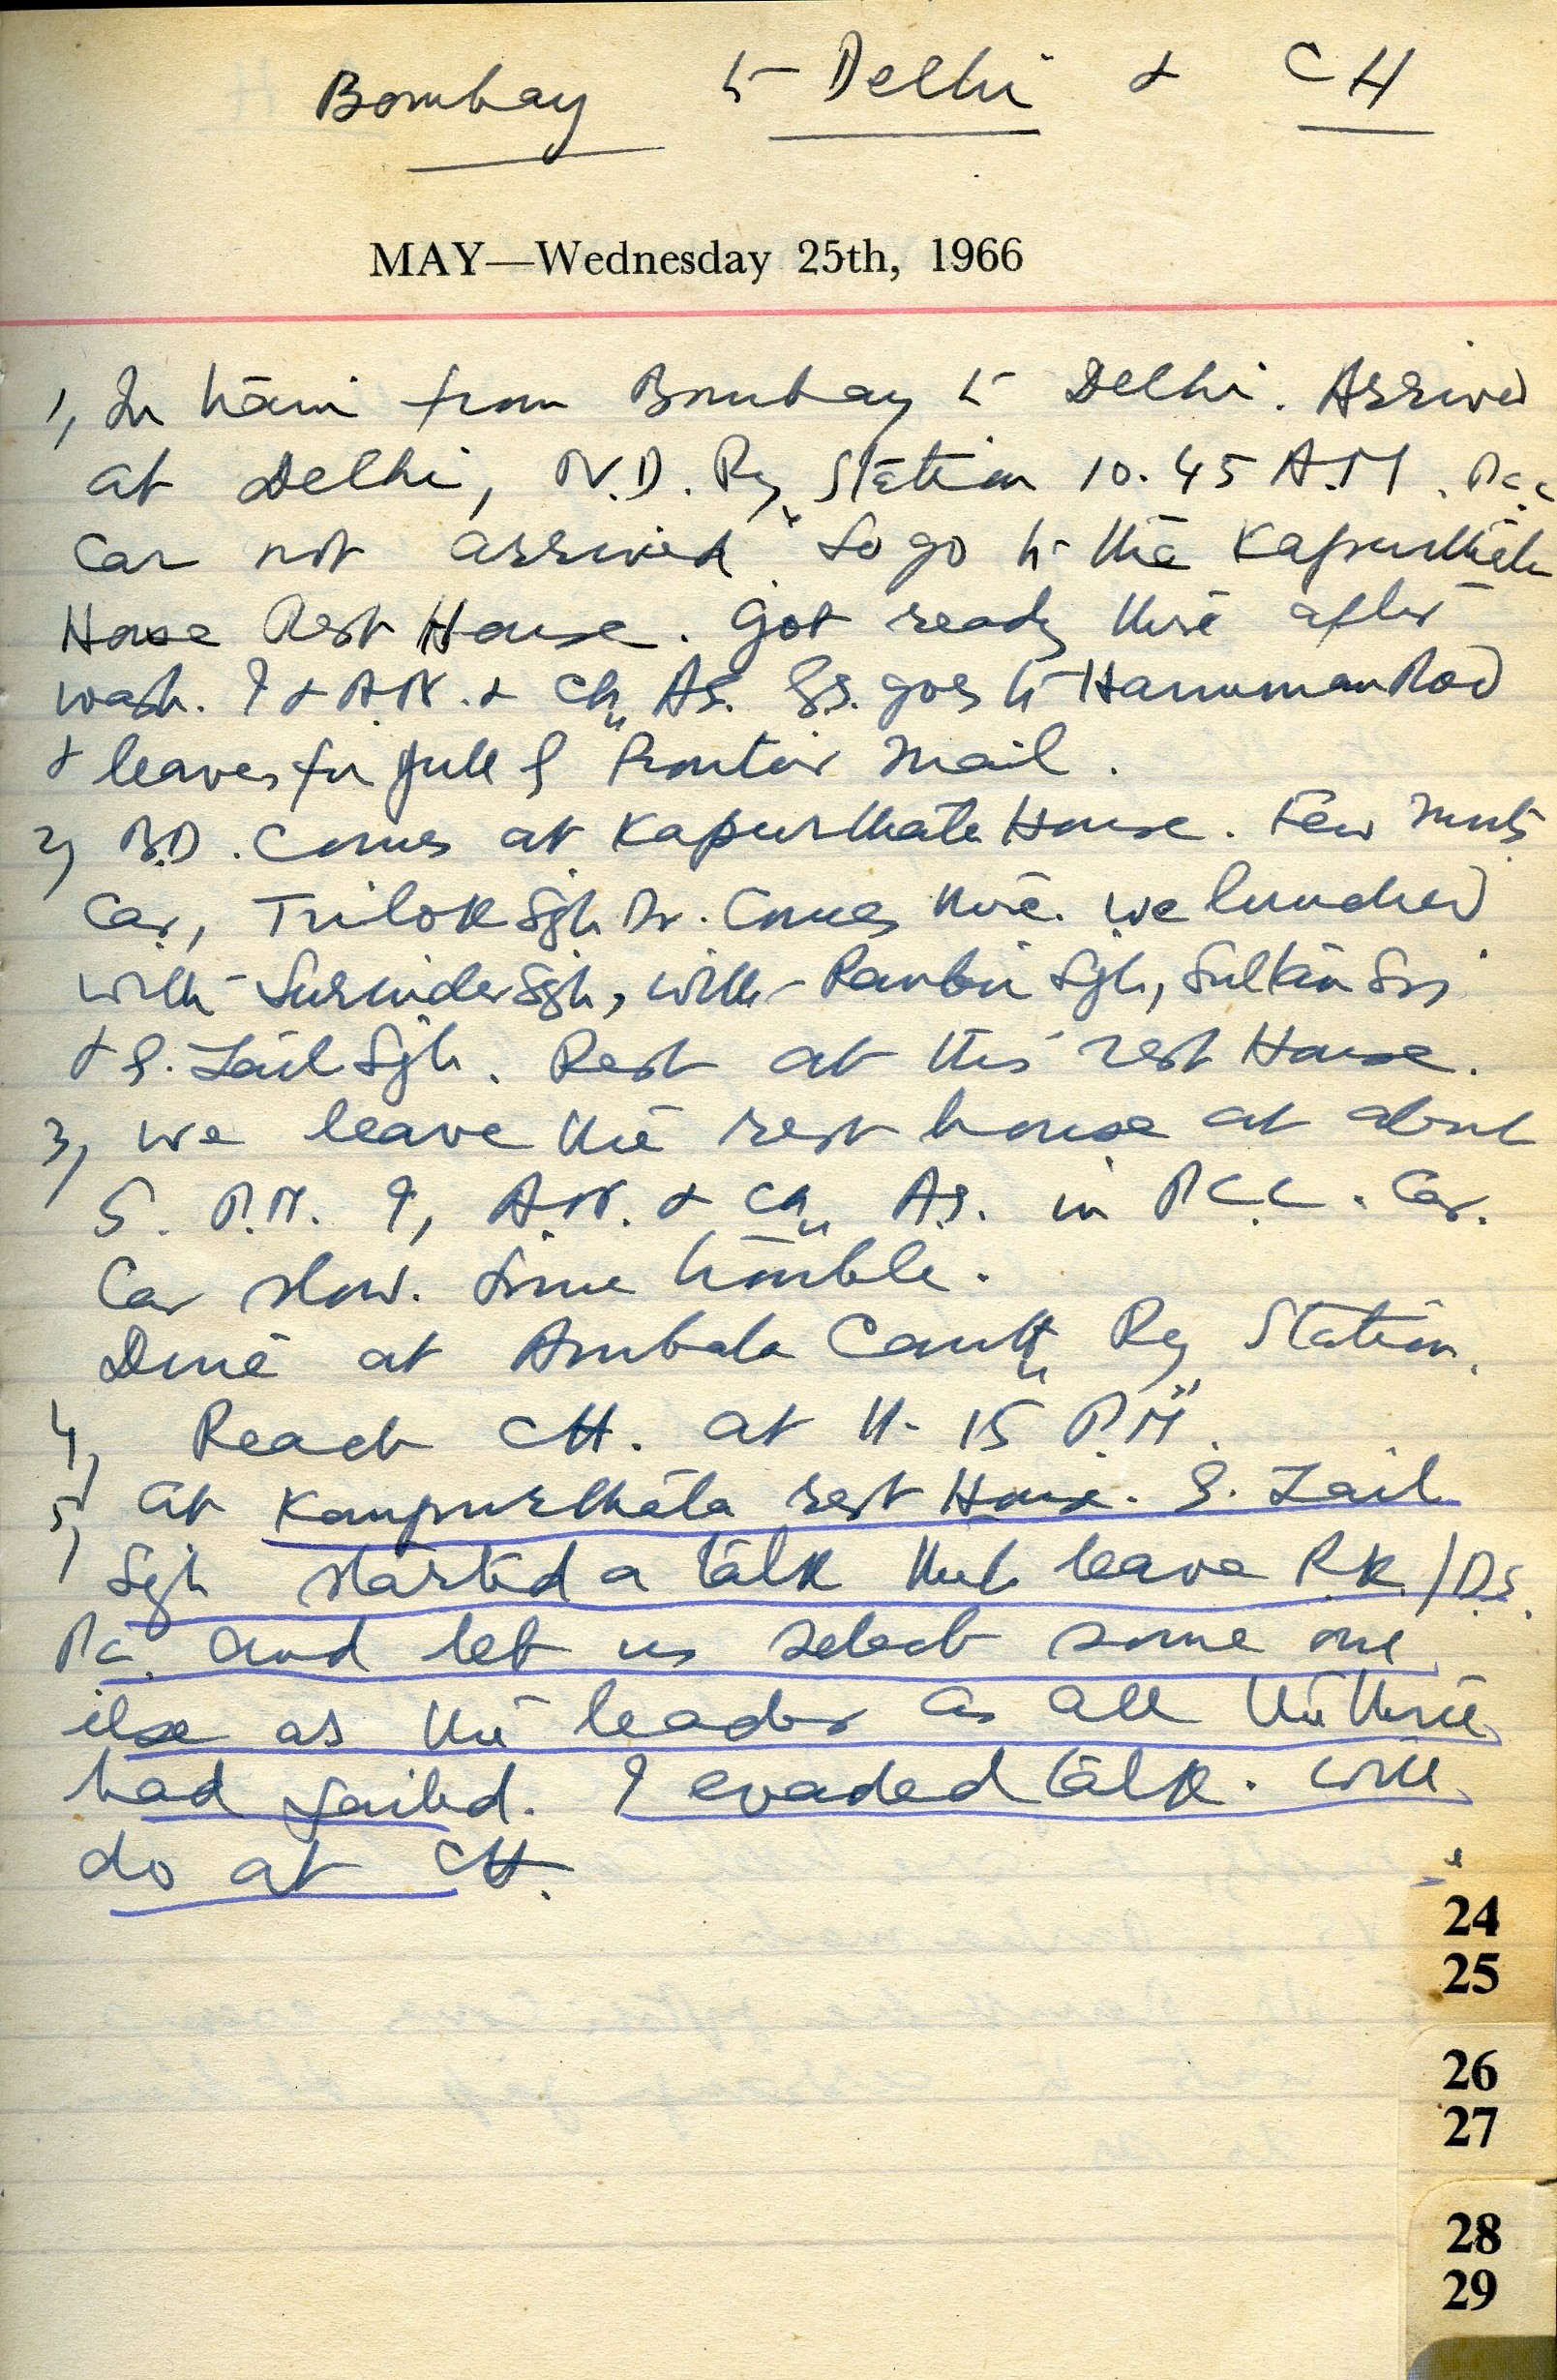 Bombay to Delhi & CH
MAY—Wednesday 25th, 1966
1, In train from Bombay to Delhi. Arrived
at Delhi, N.D. Ry Station 10.45 A.M. P.C.C
Car not arrived. So go to the Kapurthala
House Rest House. Got ready there after
wash. I & A.N. & Ch. A.S. SS. goes to Hanuman Road
& leaves for Jull Frontier Mail.
2, B.D. comes at Kapurthala House. Few
Car, Trilok Sgh Dr. comes there. We lunched
with Surinder Sgh, with Ranbir Sgh, Sultan
& S. Zail Sgh. Rest at this rest House.
3, we leave the rest house at about
5. P.M. I, A.N. & Ch. A.S. in P.C.C. Car.
Car slow. Some trouble.
Dine at Ambala Cantt Ry Station.
4, Reach CH. at 11-15 P.M.
5, at Kaupurthala rest House. S. Zail
Sgh started a talk that leave R.K./D.S.
P.C. and let us select some one
else as the leader as all the three
had failed. I evaded talk. Will
do at CH.
24
25
26
27
28
29